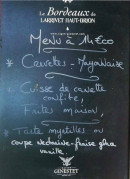 Les Bordeaux de
LARRIVET HAUT-BRION
Menu à 14€00
* Crevettes - Mayonnaise
* Cuisse de canette
confite,
Frites maison,
* Tarte myrtilles ou
coupe verveine-fraise glace
vanille.
GENESTET